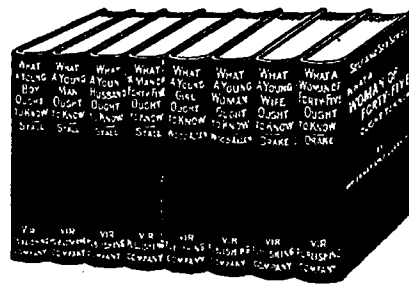 WHAT
A YOUNG
BOY
OUGHT
TO KNOW
STALL
VIR
PUBLISHING
COMPANY
WHAT
A YOUNG
MAN
OUGHT
TO KNOW
STALL
VIR
PUBLISHING
COMPANY
WHAT
A YOUNG
HUSBAND
OUGHT
TO KNOW
STALL
VIR
PUBLISHING
COMPANY
WHAT
A MAN OF
FORTY-FIVE
OUGHT
TO KNOW
STALL
VIR
PUBLISHING
COMPANY
WHAT
A YOUNG
GIRL
OUGHT
TO KNOW
WOOD-ALLEN
VIR
PUBLISHING
COMPANY
WHAT
A YOUNG
WOMAN
OUGHT
TO KNOW
WOOD-ALLEN
VIR
PUBLISHING
COMPANY
WHAT
A YOUNG
WIFE
OUGHT
TO KNOW
DRAKE
VIR
PUBLISHING
COMPANY
WHAT
A WOMAN OF
FORTY-FIVE
OUGHT
TO KNOW
DRAKE
VIR
PUBLISHING
COMPANY
WHAT A
WOMAN OF
FORTY-FIVE
OUGHT TO KNOW
BY